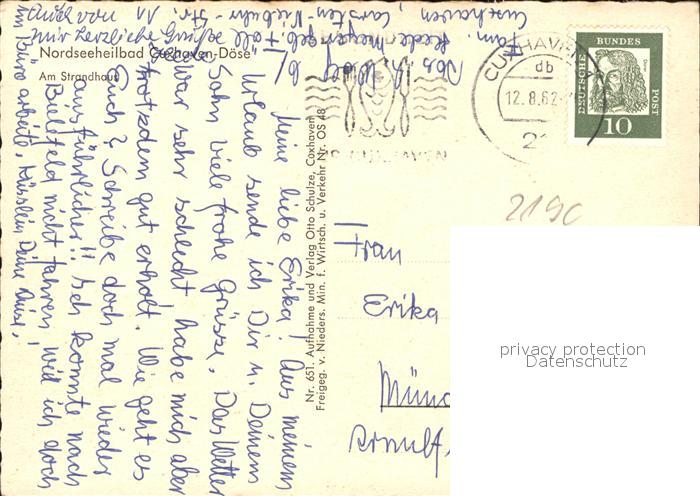 Nordseeheilbad Cuxhaven-Döse
Am Strandhaus
Meine liebe Erika! Aus meinem
Urlaub sende ich Dir u. Deinem
Sohn viele frohe Grüsse. Das Wetter
war sehr schlecht habe mich aber
trotzdem gut erholt. Wie geht es
Euch? Schreibe doch mal wieder
ausführlicher!! Ich konnte nach
Bielefeld nicht fahren, weil ich doch
im Büro arbeite. Küsslein Deine
Auch von
mir herzliche Grüsse
Cuxhaven, Carsten-Niebuhr-Str. 11
Nr. 651. Aufnahme und Verlag Otto Schulze, Cuxhaven
Freigeg. v. Nieders. Min. f. Wirtsch. u. Verkehr Nr. OS 48
CUXHAVEN
db
12.8.62
DEUTSCHE
BUNDES
POST
10
2190
Frau
Erika
Münc
Arnulf
privacy protection
Datenschutz